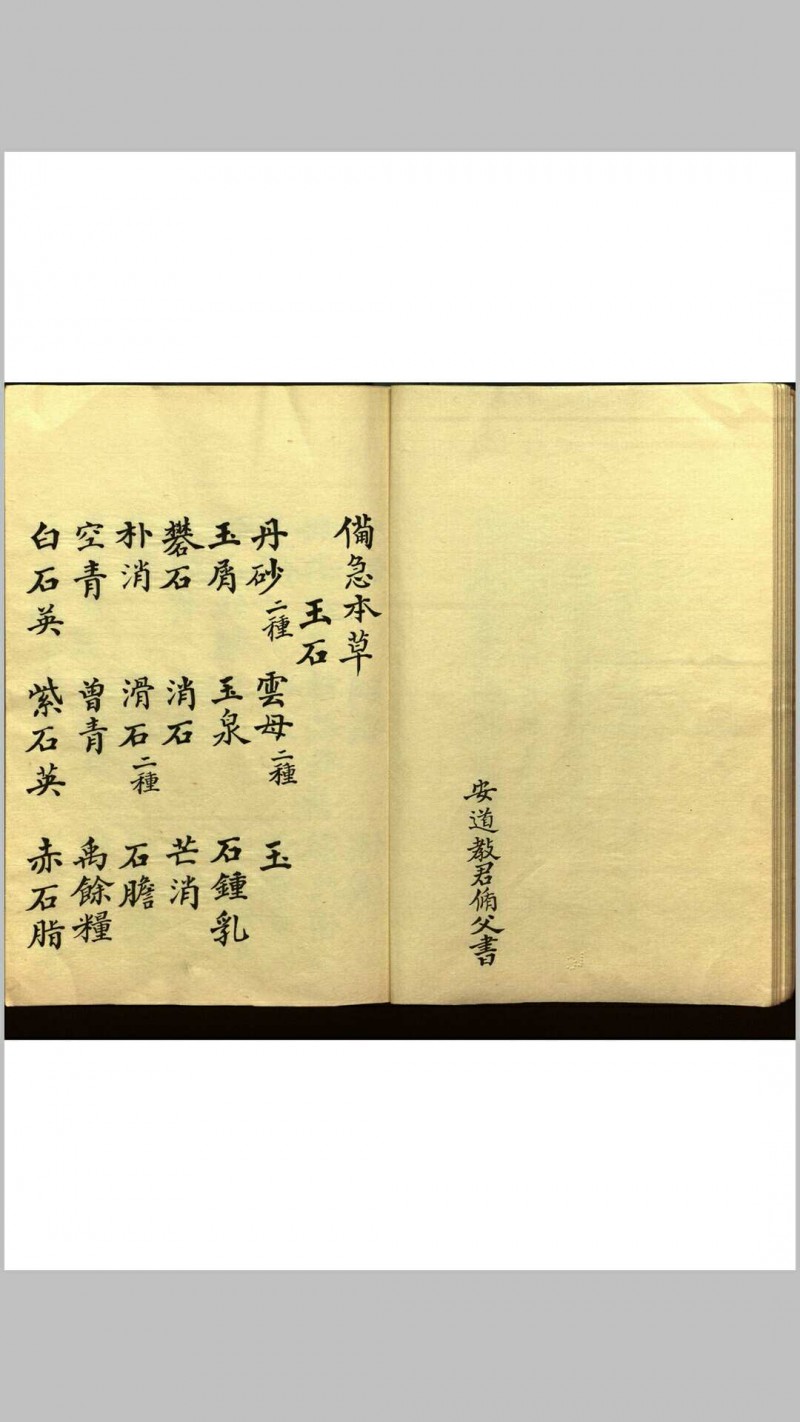 安道教君脩父書
備急本草
玉石
丹砂二種 雲母二種 玉
玉屑 玉泉 石鍾乳
礬石 消石 芒消
朴消 滑石二種 石膽
空青 曾青 禹餘糧
白石英 紫石英 赤石脂